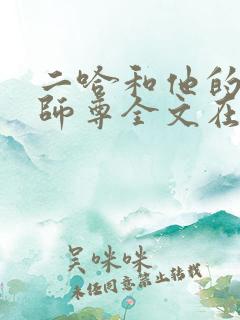 二哈和他的
師尊全文在
吴咪咪
未经同意禁止转载